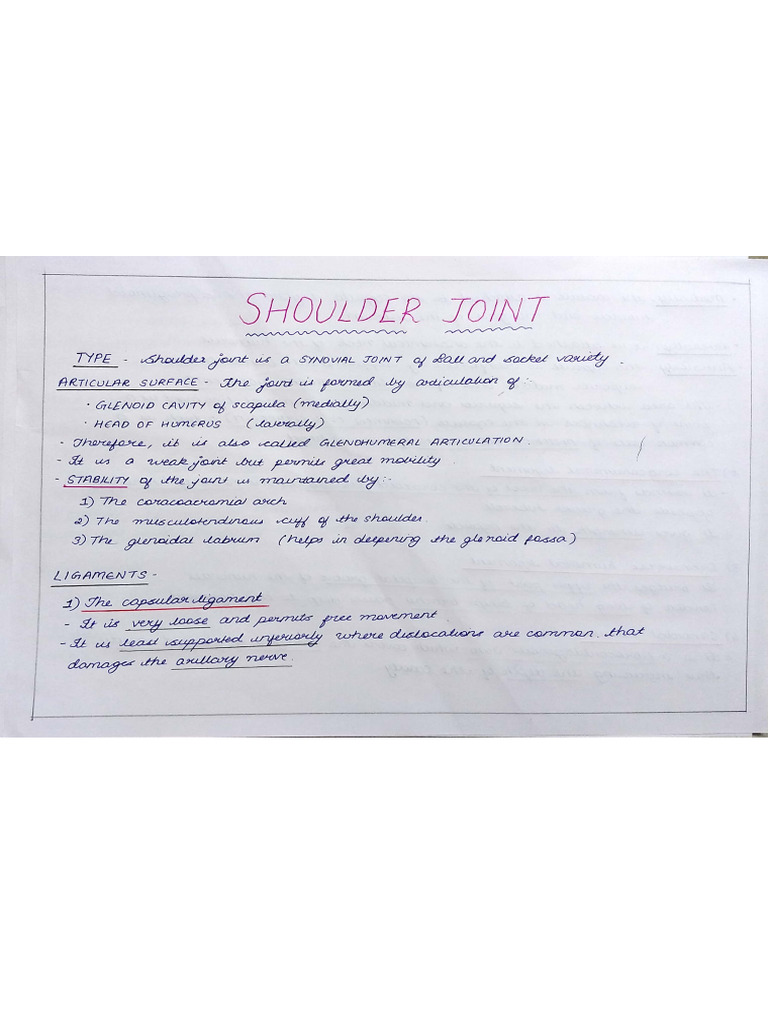 SHOULDER JOINT
TYPE - Shoulder joint is a SYNOVIAL JOINT of Ball and socket variety.
ARTICULAR SURFACE - The joint is formed by articulation of :-
· GLENOID CAVITY of scapula (medially)
· HEAD OF HUMERUS (laterally)
- Therefore, it is also called GLENOHUMERAL ARTICULATION.
- It is a weak joint but permits great mobility.
- STABILITY of the joint is maintained by:-
1) The coracoacromia arch
2) The musculotendinous cuff of the shoulder.
3) The glenoidal labrum (helps in deepening the glenoid fossa)
LIGAMENTS -
1) The capsular ligament
- It is very loose and permits free movement.
- It is least supported inferiorly where dislocations are common. that
damages the axillary nerve.